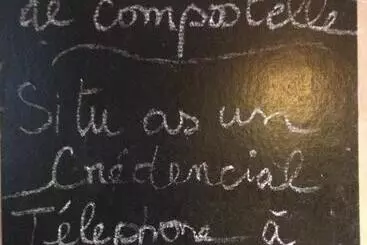 de compostelle
Si tu as un
Crédencial
Téléphone à